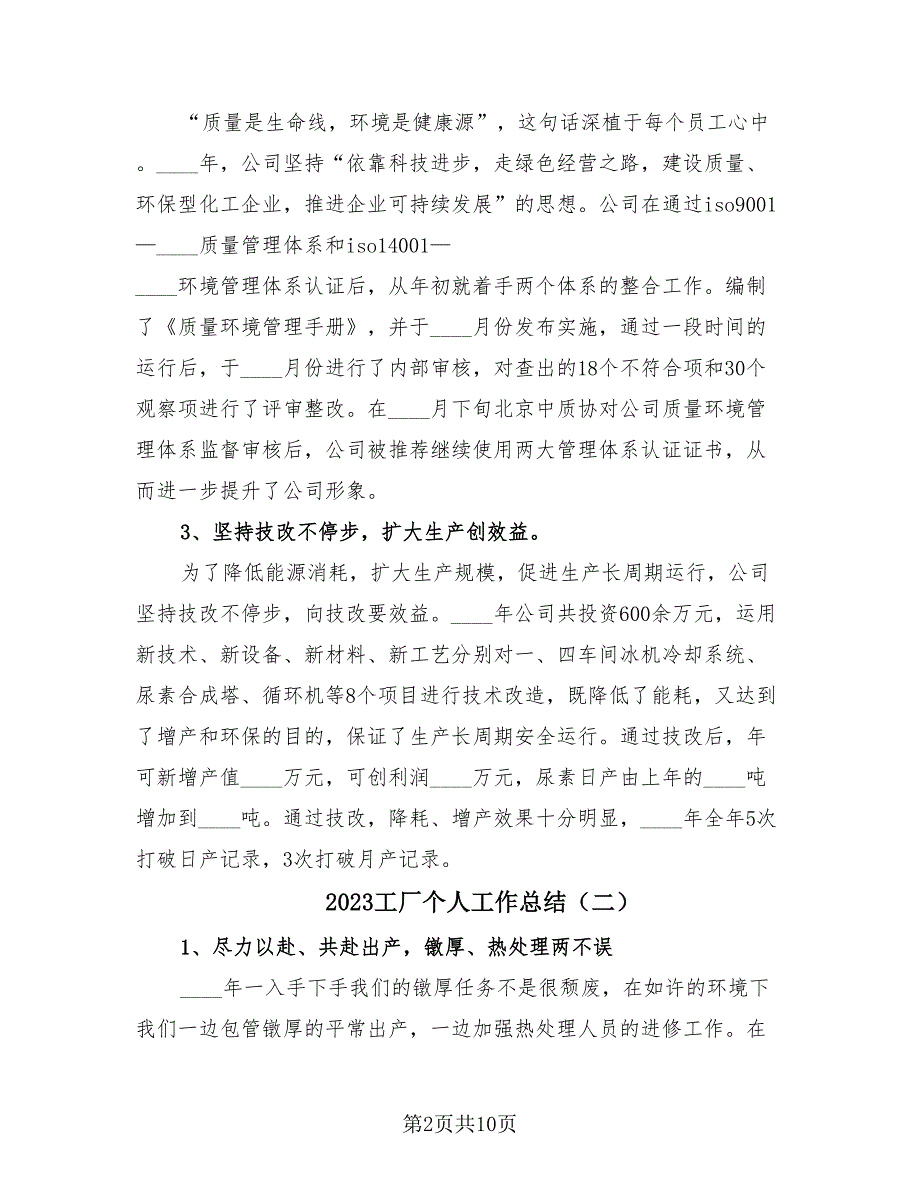 “质量是生命线，环境是健康源”，这句话深植于每个员工心中
。____年，公司坚持“依靠科技进步，走绿色经营之路，建设质量、
环保型化工企业，推进企业可持续发展”的思想。公司在通过iso9001
—____质量管理体系和iso14001—
____环境管理体系认证后，从年初就着手两个体系的整合工作。编制
了《质量环境管理手册》，并于____月份发布实施，通过一段时间的
运行后，于____月份进行了内部审核，对查出的18个不符合项和30个
观察项进行了评审整改。在____月下旬北京中质协对公司质量环境管
理体系监督审核后，公司被推荐继续使用两大管理体系认证证书，从
而进一步提升了公司形象。
3、坚持技改不停步，扩大生产创效益。
为了降低能源消耗，扩大生产规模，促进生产长周期运行，公司
坚持技改不停步，向技改要效益。____年公司共投资600余万元，运用
新技术、新设备、新材料、新工艺分别对一、四车间冰机冷却系统、
尿素合成塔、循环机等8个项目进行技术改造，既降低了能耗，又达到
了增产和环保的目的，保证了生产长周期安全运行。通过技改后，年
可新增产值____万元，可创利润____万元，尿素日产由上年的____吨
增加到____吨。通过技改，降耗、增产效果十分明显，____年全年5次
打破日产记录，3次打破月产记录。
2023工厂个人工作总结（二）
1、尽力以赴、共赴出产，镦厚、热处理两不误
____年一入手下手我们的镦厚任务不是很颓废，在如许的环境下
我们一边包管镦厚的平常出产，一边加强热处理人员的进修工作。在
第2页共10页